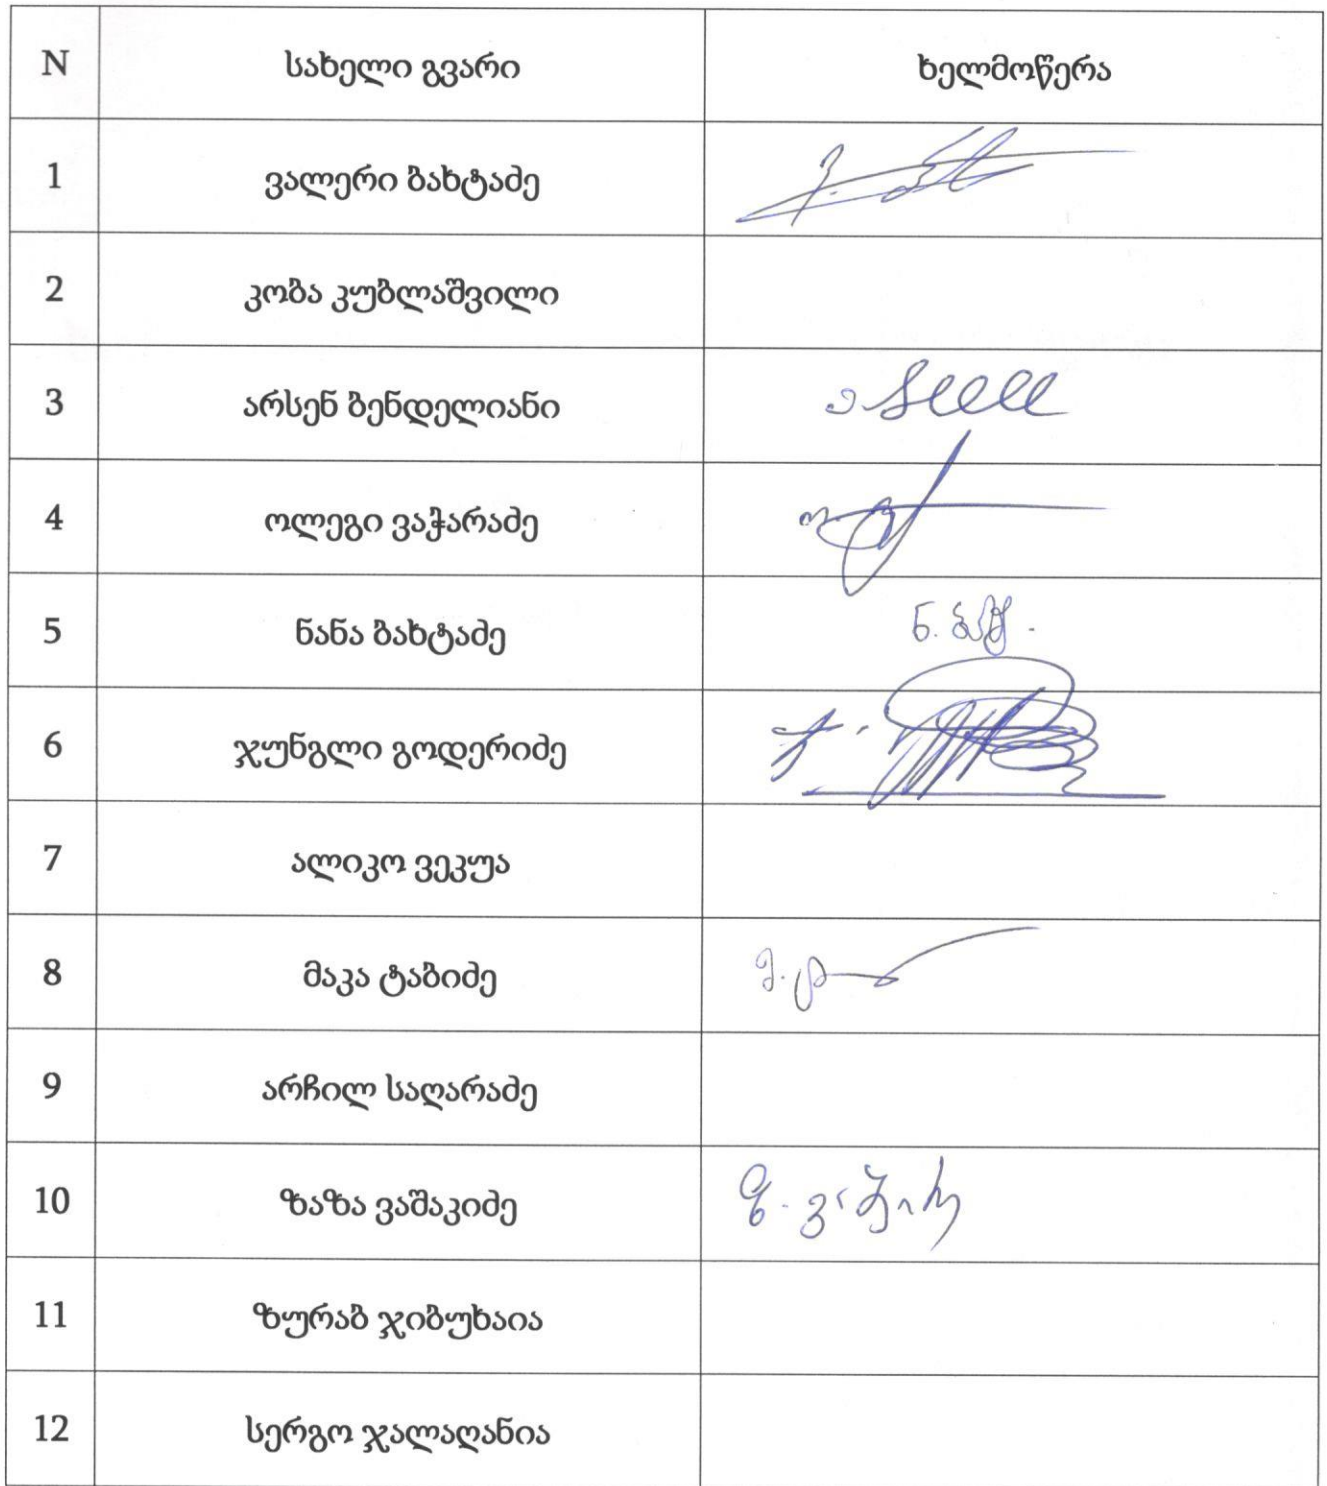 N სახელი გვარი ხელმოწერა
1 ვალერი ბახტაძე
2 კობა კუბლაშვილი
3 არსენ ბენდელიანი
4 ოლეგი ვაჭარაძე
5 ნანა ბახტაძე ნ. ბახ.
6 ჯუნგლი გოდერიძე
7 ალიკო ვეკუა
8 მაკა ტაბიძე
9 არჩილ საღარაძე
10 ზაზა ვაშაკიძე
11 ზურაბ ჯიბუხაია
12 სერგო ჯალაღანია